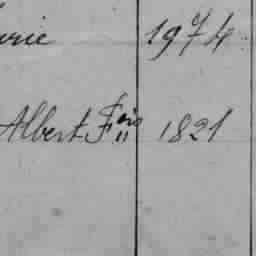 urie 1974
Albert Fois 1821